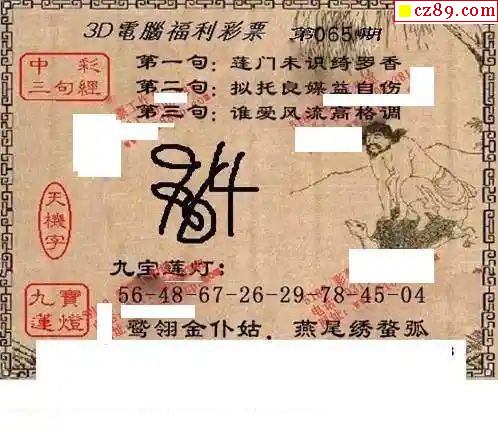 cz89.com
3D電腦福利彩票 第065期
中彩
三句經
第一句：蓬门未识绮罗香
第二句：拟托良媒益自伤
第三句：谁爱风流高格调
天機字
九宝莲灯：
九寶
蓮燈
56-48-67-26-29-78-45-04
鹫翎金仆姑．燕尾绣蝥弧